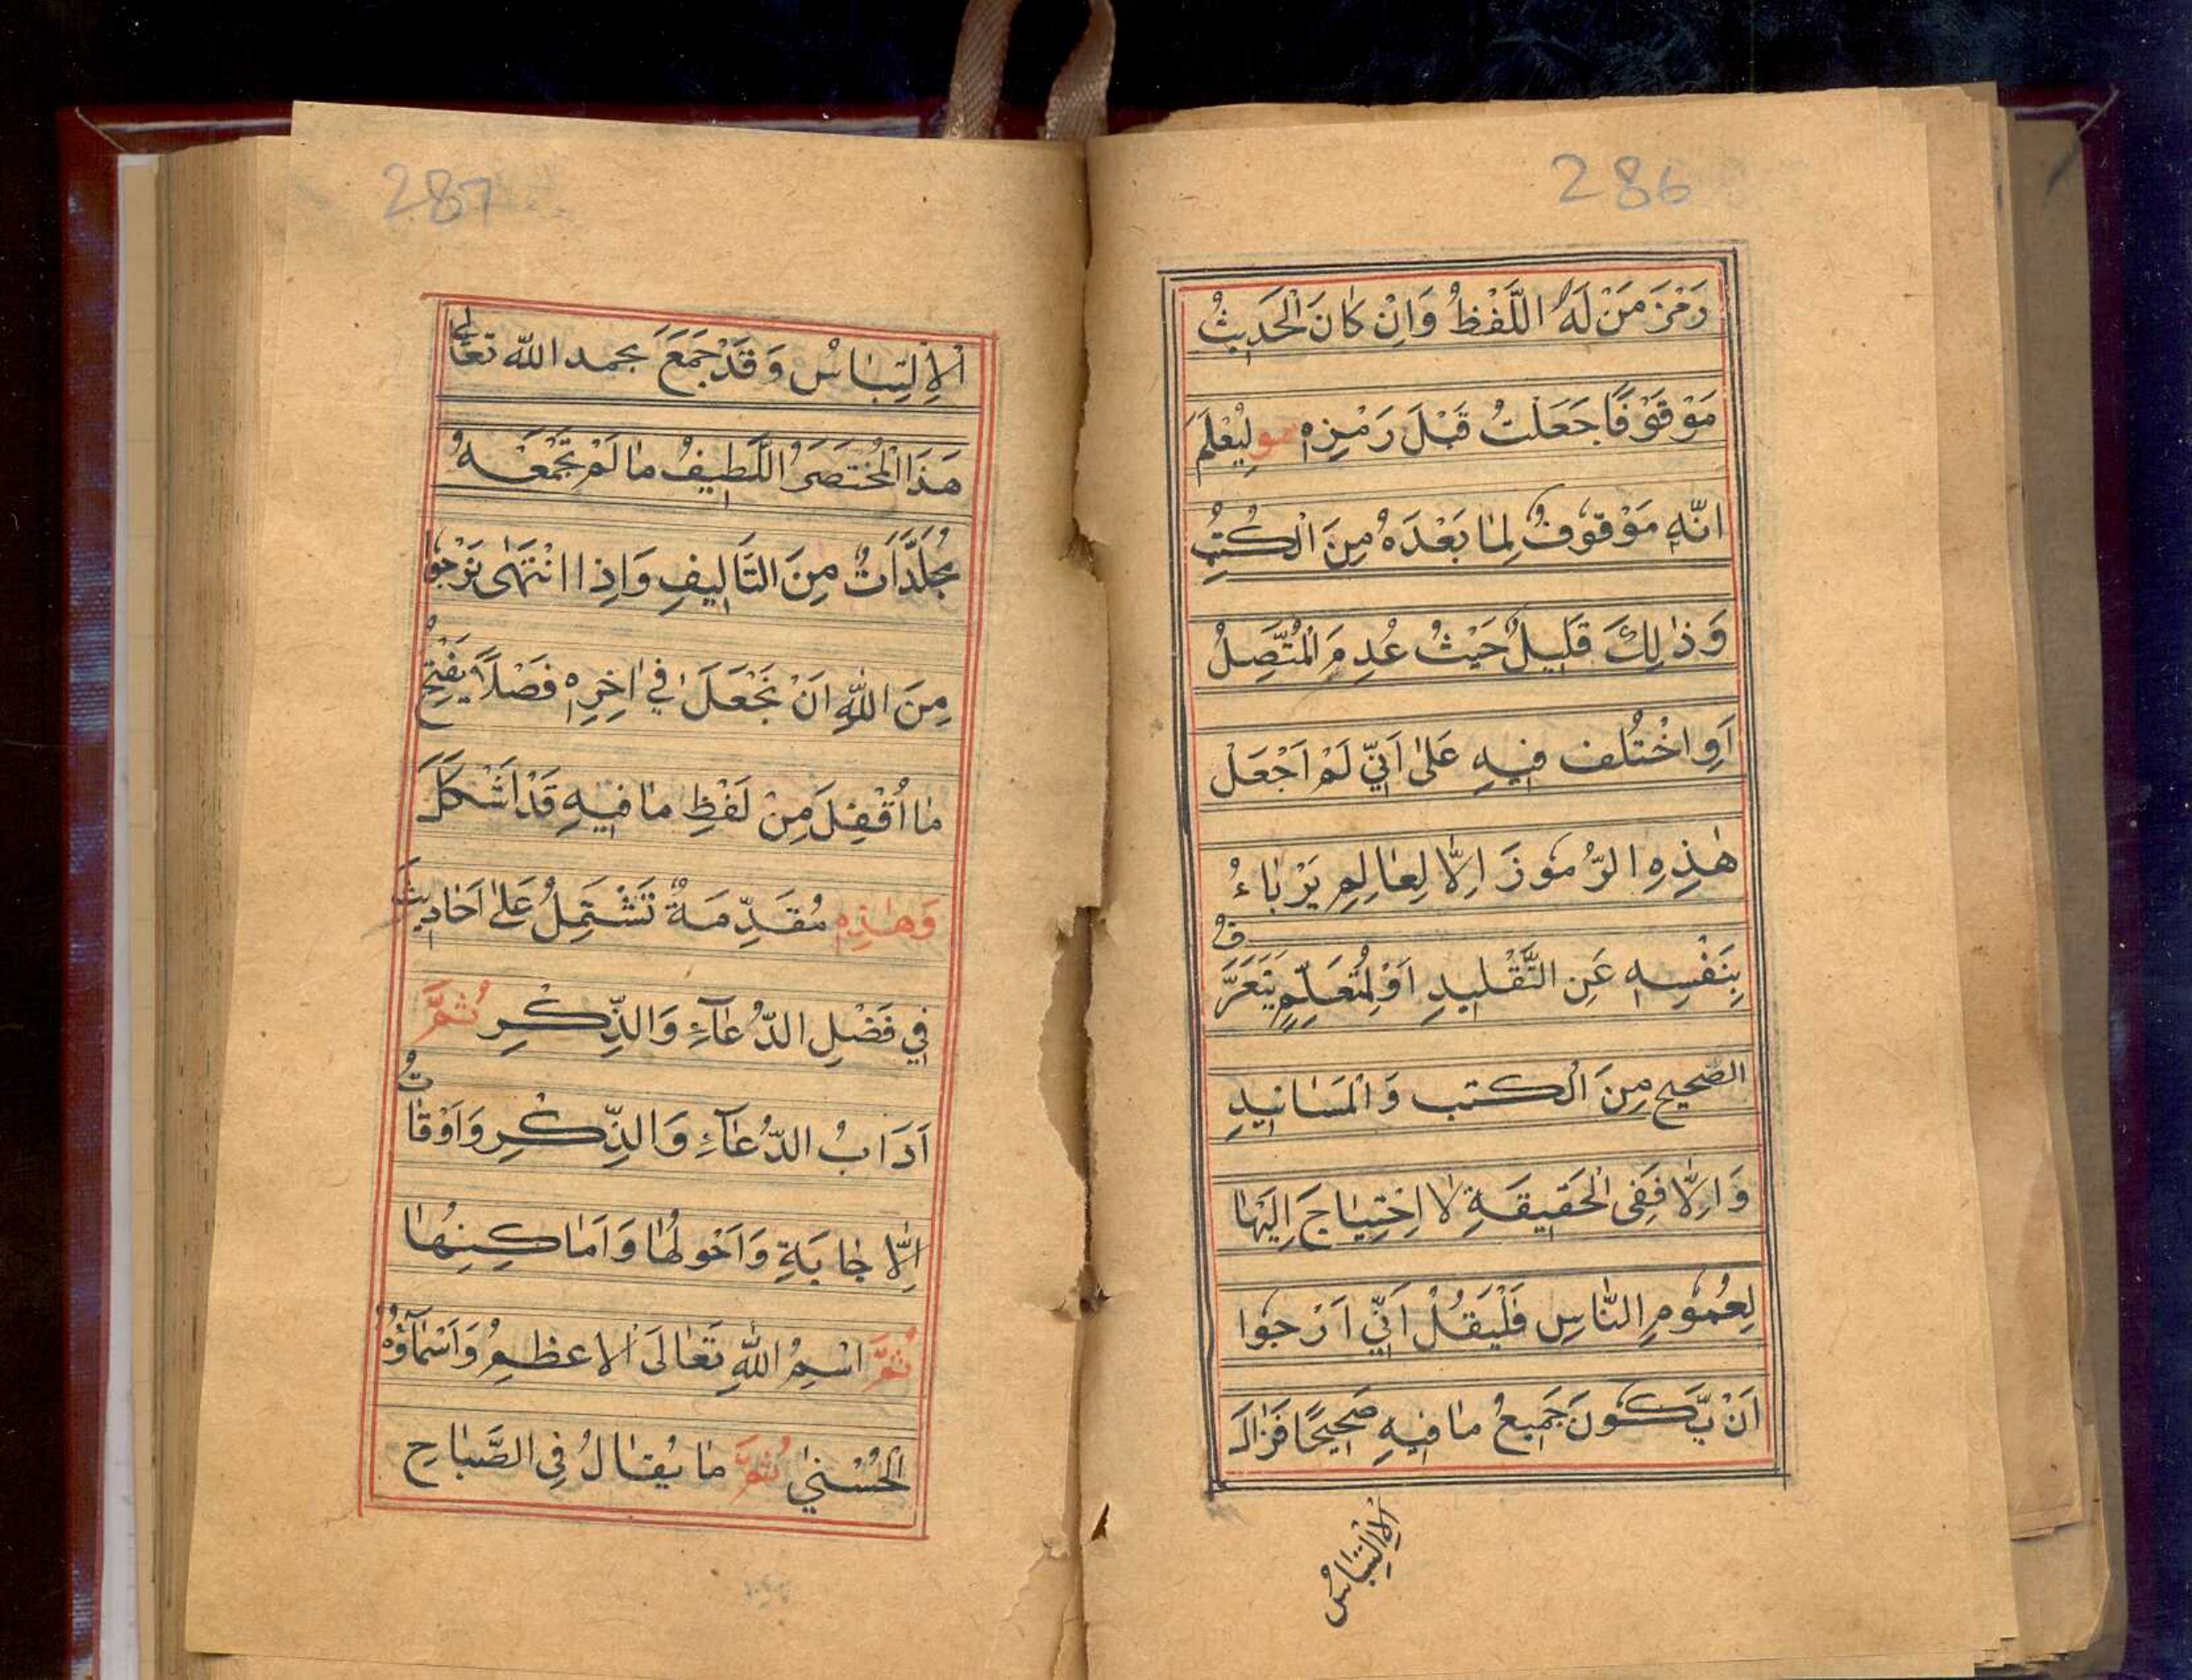 286
رَمْزَ مَنْ لَهُ اللَّفْظُ وَاِنْ كَانَ الْحَدِيثُ
مَوْقوْفًا جَعَلتُ قَبْلَ رَمْزِهٖ مو لِيُعْلَمَ
انَّهٖ مَوْقوْفٌ لِمَا بَعْدَهٗ مِنَ الْكُتُبِ
وَذٰلِكَ قَلِيلٌ حَيْثُ عُدِمَ الْمُتَّصِلُ
اَوِ اخْتُلف فيهِ عَلىٰ اَنِّيْ لَمْ اَجْعَلْ
هٰذِهِ الرُّمُوْزَ اِلَّا لِعَالِمٍ يَرْبَاءُ
بِنَفْسِهٖ عَنِ التَّقْليدِ اَوْ لِمُتَعَلِّمٍ يَتَعَرَّفُ
الصّحيح مِنَ الْكتب وَالْمَسَانيدِ
وَاِلَّا فَفِى الْحَقيقَةِ لَا اِحْتِيَاجَ اِلَيْهَا
لِعُمُوْمِ النَّاسِ فَلْيَقُلْ اَنِّيْ اَرْجُوْا
اَنْ يَّكُوْنَ جَمِيعُ مَا فيهِ صَحِيحًا فَزَالَ
الْاِلْتِبَاسُ
287
الْاِلْتِبَاسُ وَقَدْ جَمَعَ بحمد الله تعَالٰى
هَذَا الْمُخْتَصَرُ اللَّطِيفُ مَا لَمْ تَجْمَعْهُ
مُجَلَّدَاتٌ مِنَ التَّاليفِ وَاِذا انْتَهٰى نَرْجُوْا
مِنَ اللّٰهِ اَنْ نَجْعَلَ فِيْ اٰخِرِهٖ فَصْلًا يَفْتَحُ
مَا اُقْفِلَ مِنْ لَفْظِ مَا فيهِ قَدْ اَشْكَلَ
وَهٰذِهٖ مُقَدِّمَةٌ تَشْتَمِلُ عَلٰى اَحَاديثَ
فِيْ فَضْلِ الدُّعَآءِ وَالذِّكْرِ ثُمَّ
اَدَابُ الدُّعَآءِ وَالذِّكْرِ وَاَوْقَاتُ
اِلَّا جَابَةِ وَاَحْولُهَا وَاَمَاكِنِهَا
ثُمَّ اسْمُ اللّٰهِ تَعَالَى الْاعظمِ وَاَسْمَآؤُهُ
الْحُسْنٰى ثُمَّ مَا يُقَالُ فِى الصَّبَاحِ